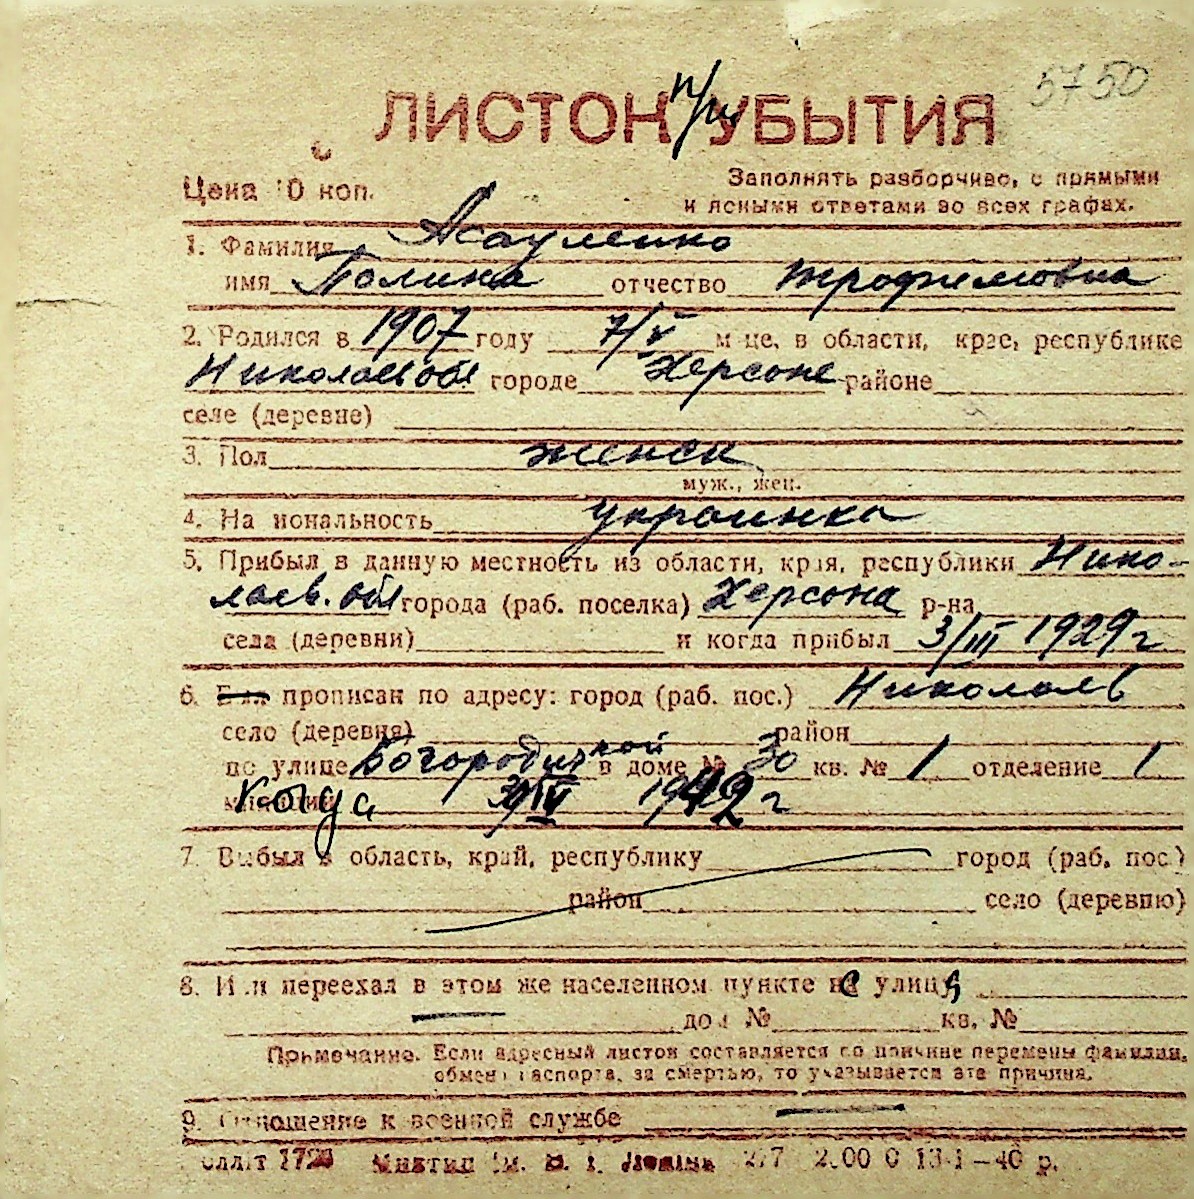 5750
ЛИСТОК п/ш УБЫТИЯ
Цена 10 коп.
Заполнять разборчиво, с прямыми
и ясными ответами во всех графах.
1. Фамилия Асауленко
имя Полина отчество Трофимовна
2. Родился в 1907 году 7/V м-це, в области, крае, республике
Николаев обл городе Херсоне районе
селе (деревне)
3. Пол женск
муж., жен.
4. Национальность украинка
5. Прибыл в данную местность из области, края, республики Нико-
лаев. обл города (раб. поселка) Херсона р-на
села (деревни) и когда прибыл 3/III 1929 г
6. Был прописан по адресу: город (раб. пос.) Николаев
село (деревня) район
по улице Богородичной в доме № 30 кв. № 1 отделение 1
когда IV 1942 г
7. Выбыл в область, край, республику город (раб. пос.)
район село (деревню)
8. Или переехал в этом же населенном пункте с улицы
дом № кв. №
Примечание. Если адресный листок составляется по причине перемены фамилии,
обмена паспорта, за смертью, то указывается эта причина.
9. Отношение к военной службе
1723 Миктип Им. В. І. Леніна 2.00 0 13-1—40 р.